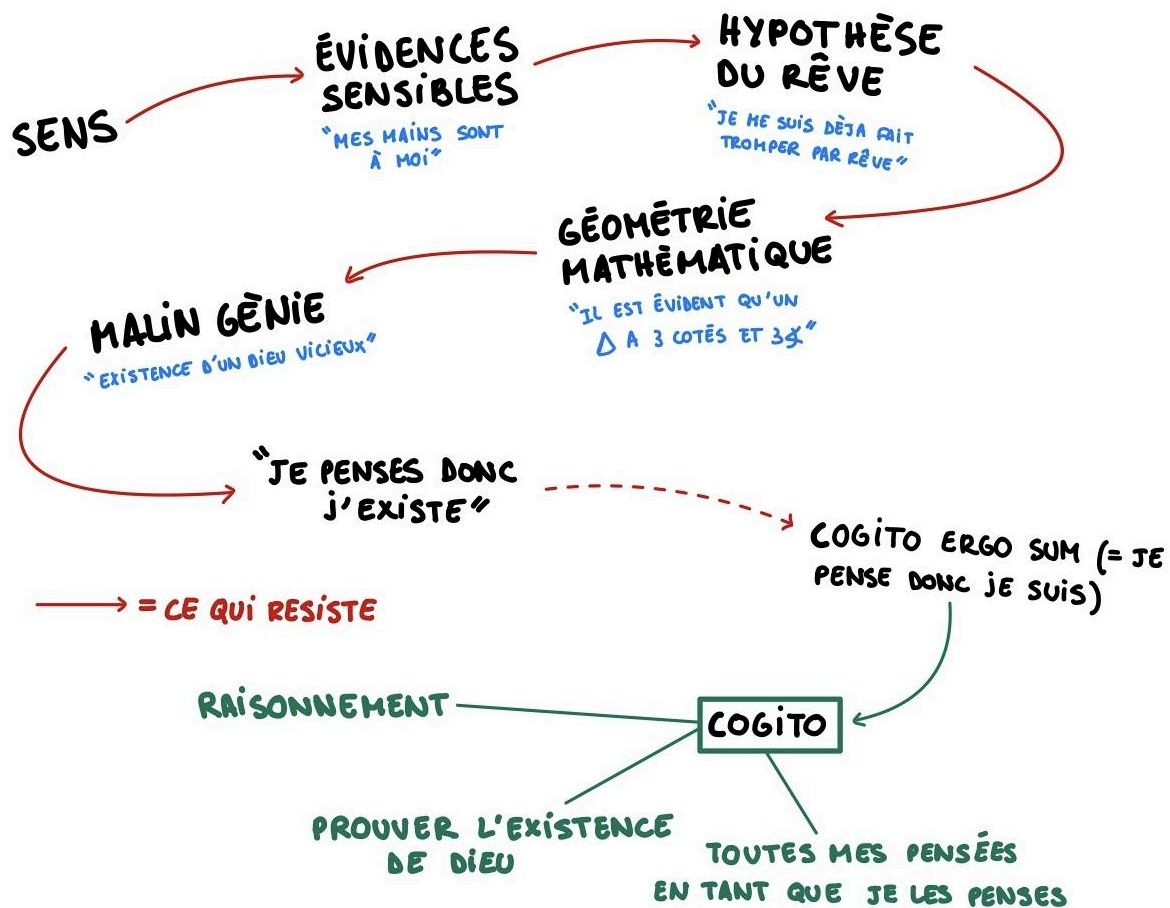 SENS
ÉVIDENCES
SENSIBLES
"MES MAINS SONT
À MOI"
HYPOTHÈSE
DU RÊVE
"JE ME SUIS DÈJA FAIT
TROMPER PAR RÊVE"
GÉOMÉTRIE
MATHÈMATIQUE
"IL EST ÉVIDENT QU'UN
Δ A 3 COTÉS ET 3∡"
MALIN GÈNIE
"EXISTENCE D'UN DIEU VICIEUX"
"JE PENSES DONC
J'EXISTE"
COGITO ERGO SUM (= JE
PENSE DONC JE SUIS)
= CE QUI RESISTE
RAISONNEMENT
COGITO
PROUVER L'EXISTENCE
DE DIEU
TOUTES MES PENSÉES
EN TANT QUE JE LES PENSES